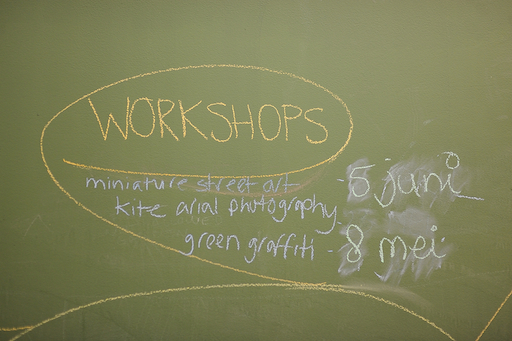 WORKSHOPS
miniature street art 5 juni
kite arial photography
green graffiti - 8 mei